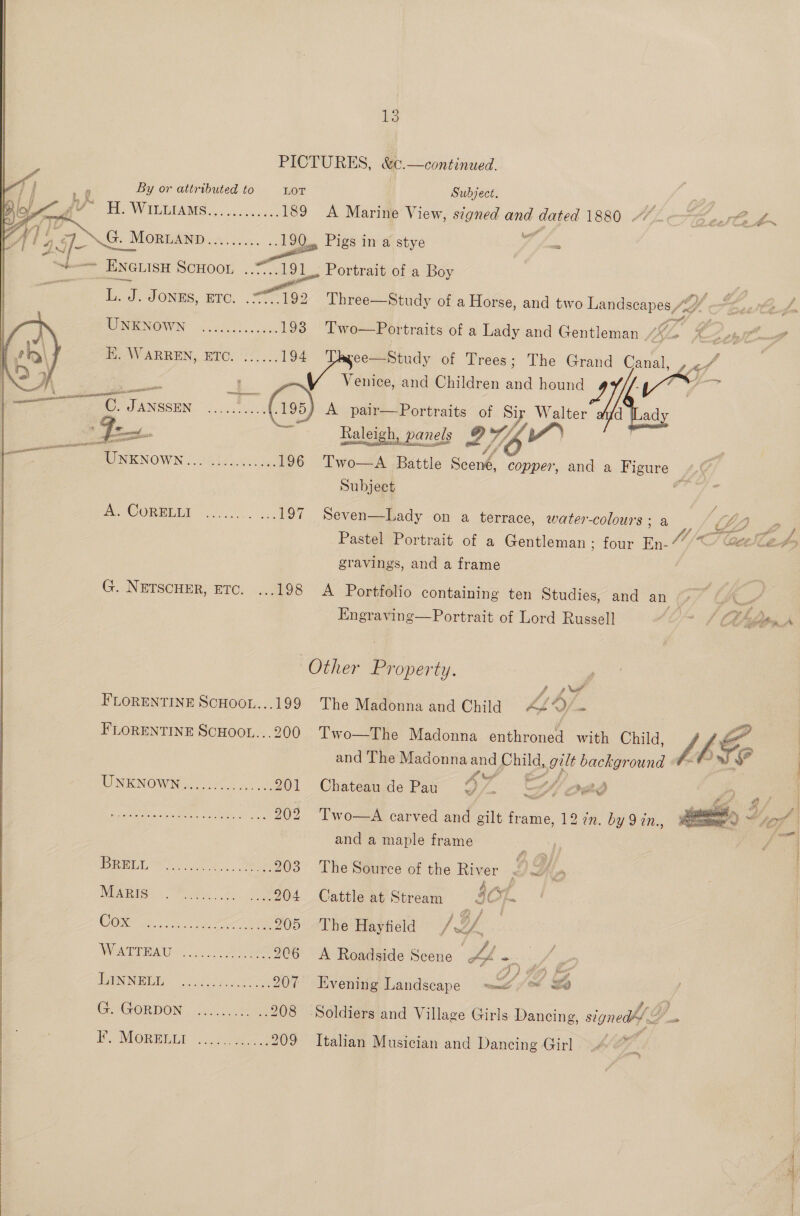 13
PICTURES, &c.—continued.
By or attributed to LOT Subject.
H. WILLIAMS............189 A Marine View, signed and dated 1880
G. MORLAND......... ..190 Pigs in a stye
ENGLISH SCHOOL ......191 Portrait of a Boy
L. J. JONES, ETC. .....192 Three—Study of a Horse, and two Landscapes
UNKNOWN ............193 Two—Portraits of a Lady and Gentleman
E. WARREN, ETC. ......194 Three—Study of Trees; The Grand Canal,
Venice, and Children and hound
C. JANSSEN ..........195 A pair—Portraits of Sir Walter and Lady
Raleigh, panels
UNKNOWN... ............196 Two—A Battle Scene, copper, and a Figure
Subject
A. CORELLI ....... ...197 Seven—Lady on a terrace, water-colours; a
Pastel Portrait of a Gentleman; four En-
gravings, and a frame
G. NETSCHER, ETC. ...198 A Portfolio containing ten Studies, and an
Engraving—Portrait of Lord Russell
Other Property.
FLORENTINE SCHOOL...199 The Madonna and Child
FLORENTINE SCHOOL...200 Two—The Madonna enthroned with Child,
and The Madonna and Child, gilt background
UNKNOWN...............201 Chateau de Pau
... 202 Two—A carved and gilt frame, 12 in. by 9 in.,
and a maple frame
BRELL ..................203 The Source of the River
MARIS . ......... ....204 Cattle at Stream
COX .....................205 The Hayfield
WATTEAU ...............206 A Roadside Scene
LINNELL ...............207 Evening Landscape
G. GORDON ......... ..208 Soldiers and Village Girls Dancing, signed
F. MORELLI ............209 Italian Musician and Dancing Girl